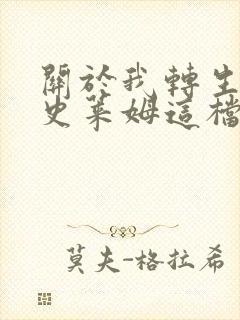 關於我轉生
史萊姆這檔
莫夫-格拉希